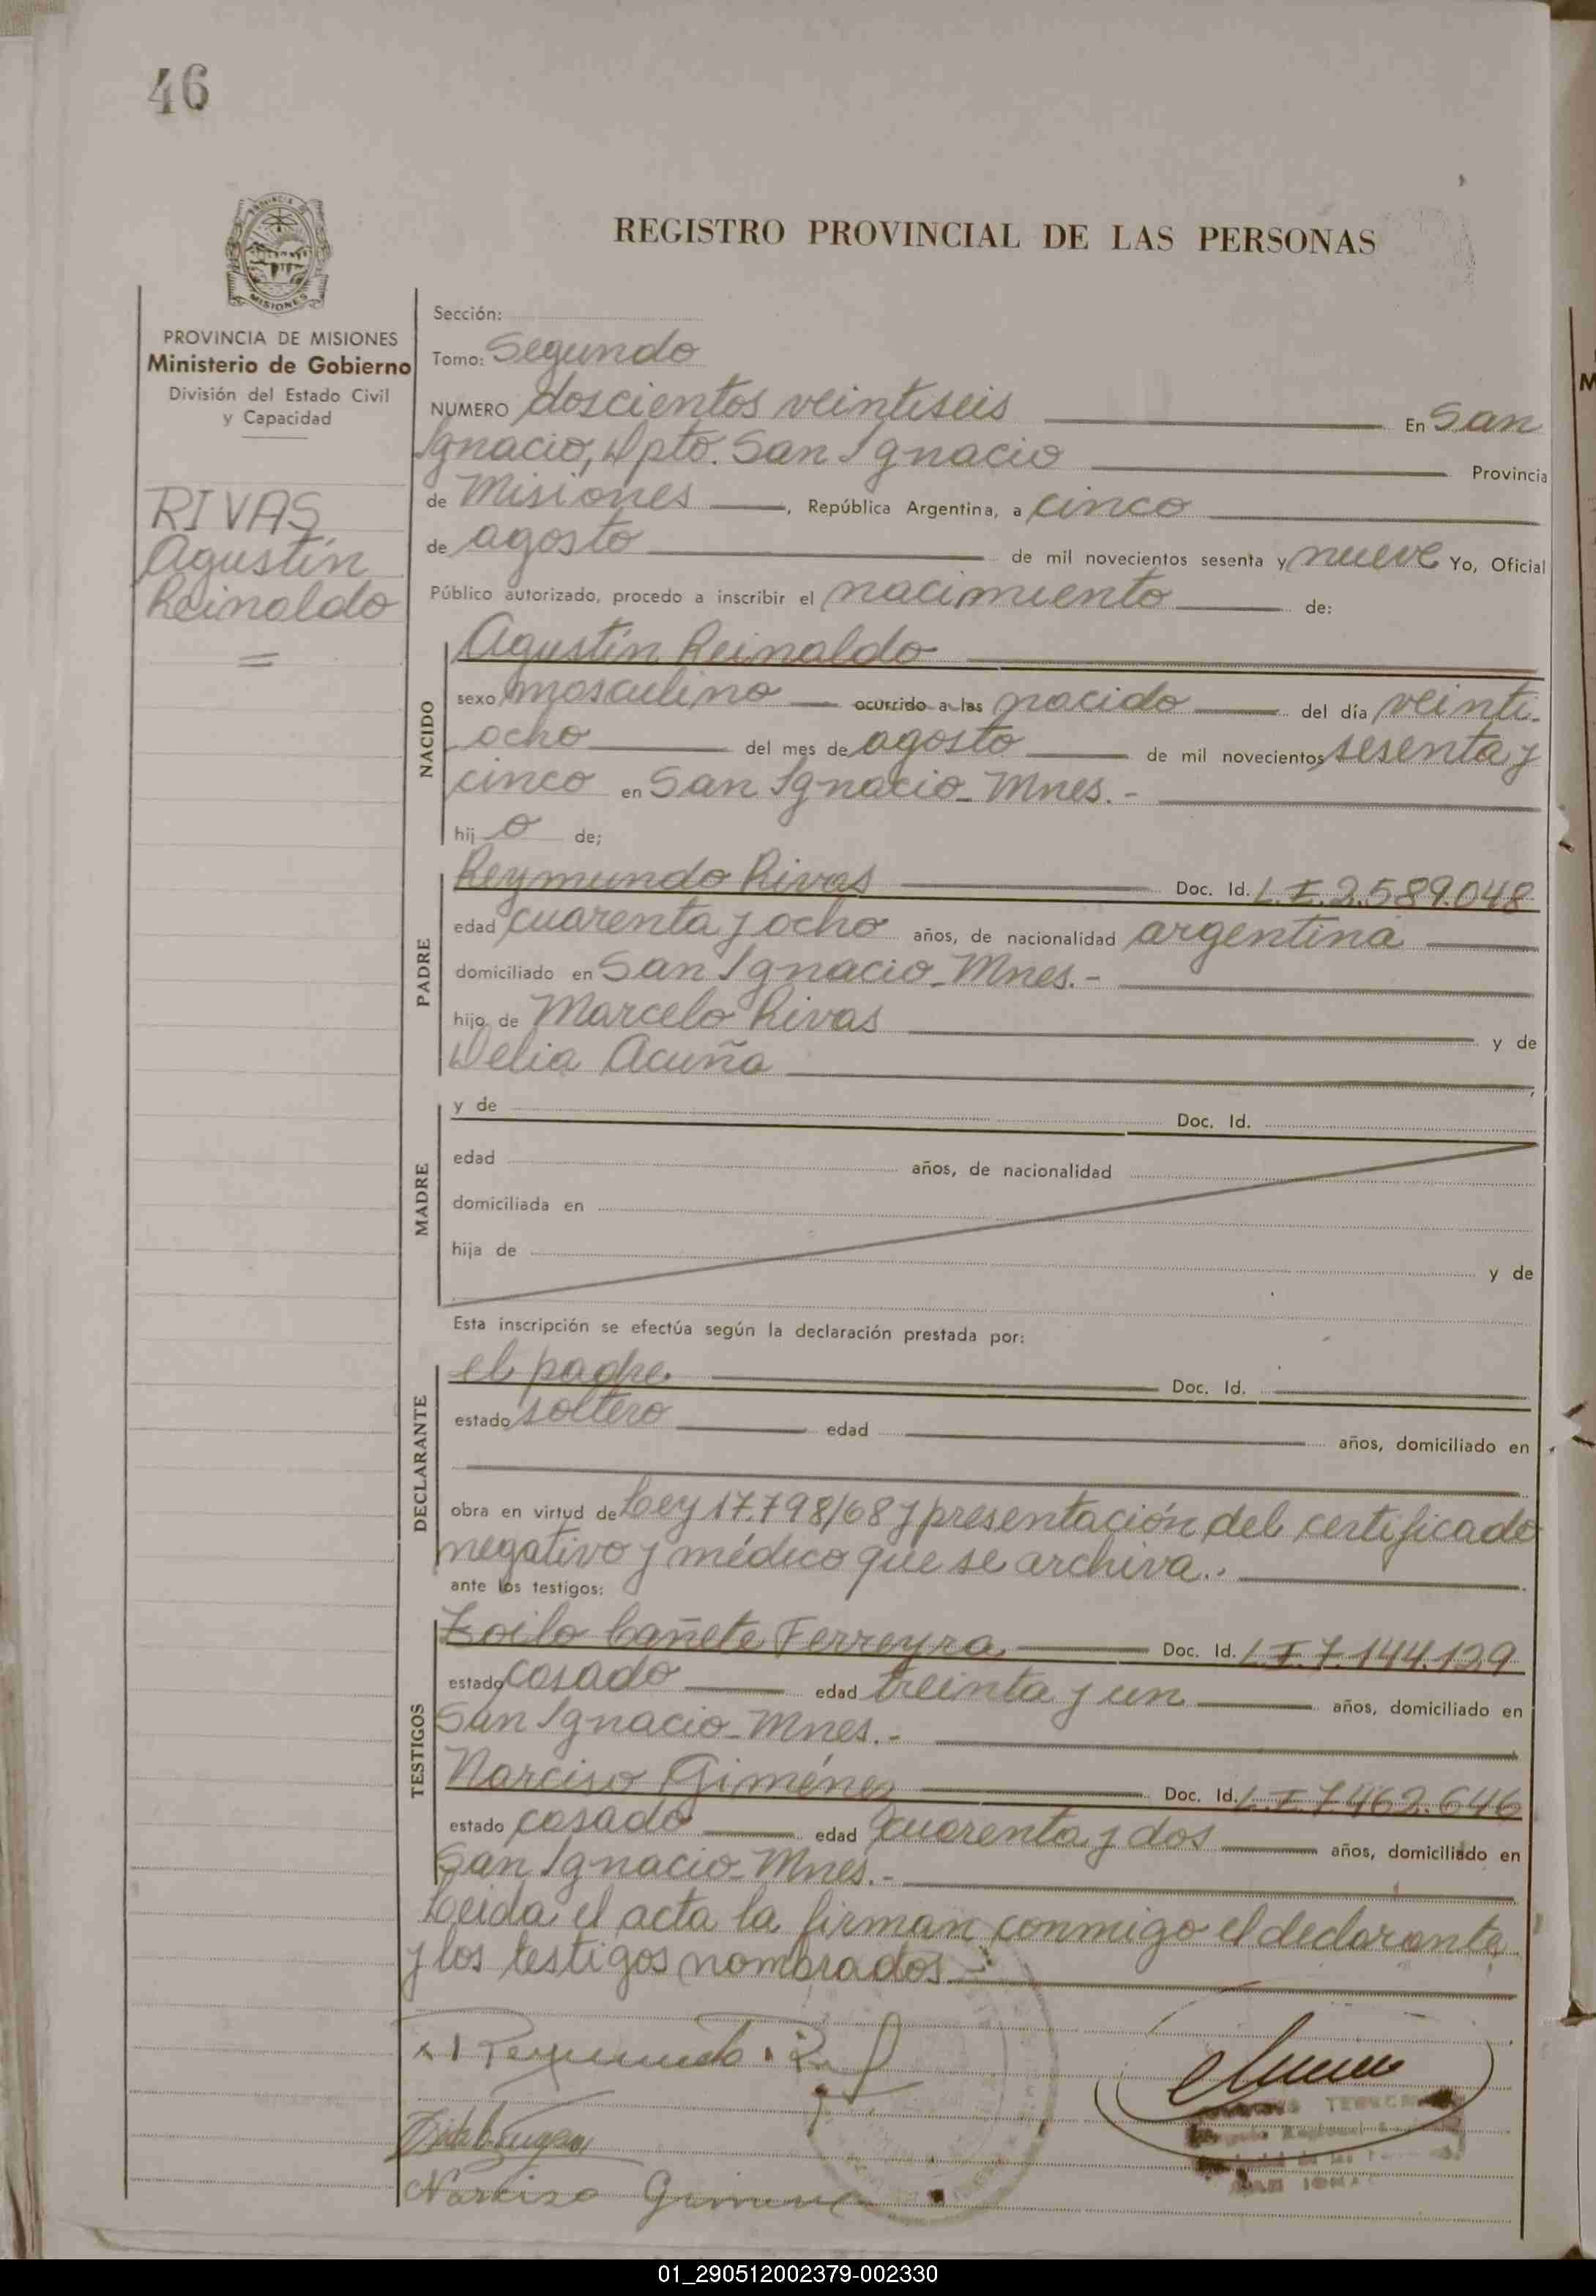 46
REGISTRO PROVINCIAL DE LAS PERSONAS
MISIONES
PROVINCIA DE MISIONES
Ministerio de Gobierno
División del Estado Civil
y Capacidad
RIVAS
Agustín
Reinaldo
Sección:
Tomo: Segundo
NUMERO doscientos veintiseis En San
Ignacio, Dpto. San Ignacio Provincia
de Misiones, República Argentina, a cinco
de agosto de mil novecientos sesenta y nueve Yo, Oficial
Público autorizado, procedo a inscribir el nacimiento de:
NACIDO
Agustín Reinaldo
sexo masculino ocurrido a las nacido del día veinti-
ocho del mes de agosto de mil novecientos sesenta y
cinco en San Ignacio_Mnes.-
hij o de;
PADRE
Reymundo Rivas Doc. Id. L.I.2.589.048
edad cuarenta y ocho años, de nacionalidad argentina
domiciliado en San Ignacio_Mnes.-
hijo de Marcelo Rivas y de
Delia Acuña
MADRE
y de Doc. Id.
edad años, de nacionalidad
domiciliada en
hija de y de
Esta inscripción se efectúa según la declaración prestada por:
DECLARANTE
el padre. Doc. Id.
estado soltero edad años, domiciliado en
obra en virtud de Ley 17.798/68 y presentación del certificado
negativo y médico que se archiva.-
ante los testigos:
TESTIGOS
Zoilo Cañete Ferreyra Doc. Id. L.I.7.144.129
estado casado edad treinta y un años, domiciliado en
San Ignacio_Mnes.-
Narciso Giménez Doc. Id. L.I.7.462.646
estado casado edad cuarenta y dos años, domiciliado en
San Ignacio_Mnes.-
Leida el acta la firman conmigo el declarante
y los testigos nombrados.-
Reymundo
Narciso Gimenez
01_290512002379-002330